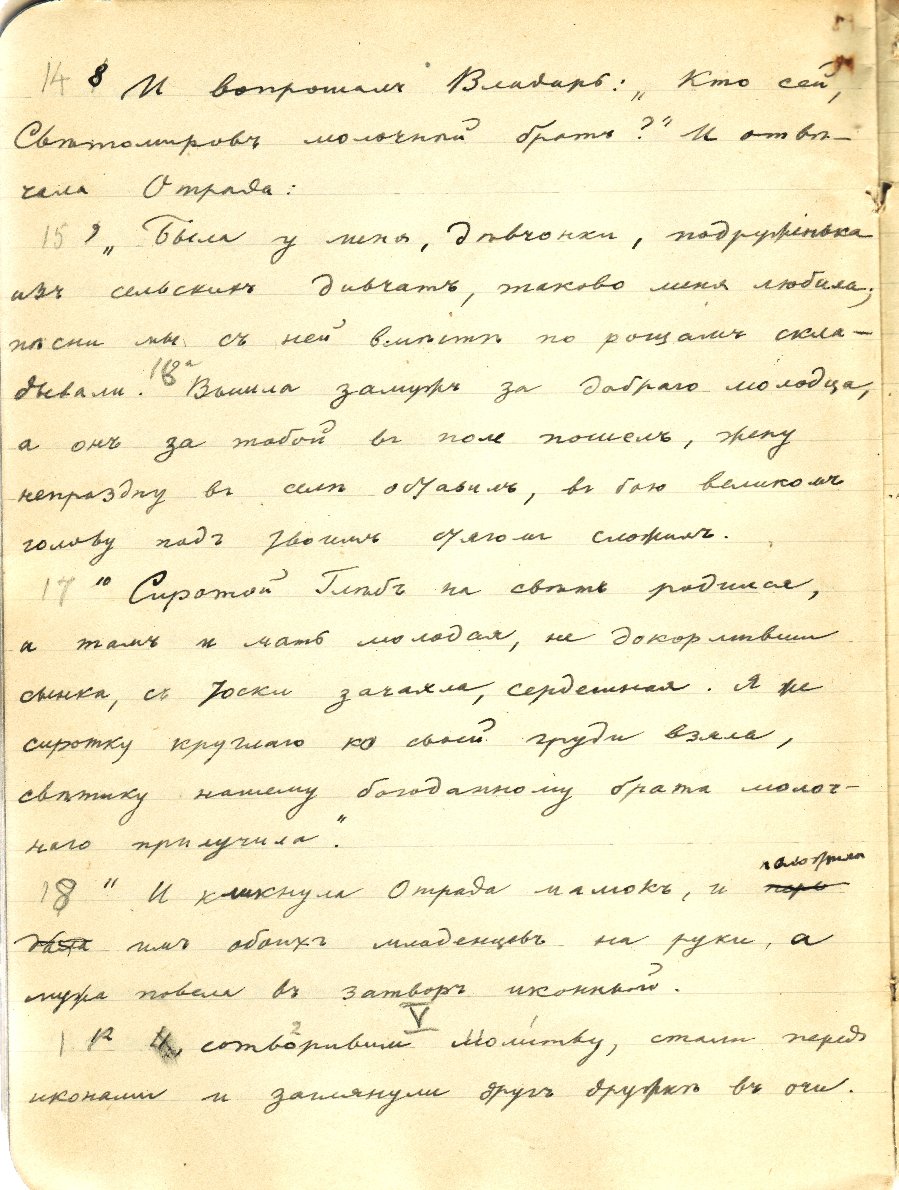 14 8 И вопрошалъ Владарь: „Кто сей,
Свѣтомировъ молочный братъ?" И отвѣ-
чала Отрада:
15 9 „Была у меня, дѣвчонки, подруженька
изъ сельскихъ дивчатъ, таково меня любила;
пѣсни мы съ ней вмѣстѣ по рощамъ скла-
дывали. Вышла замужъ за добраго молодца,
а онъ за тобой въ поле пошелъ, жену
непраздну въ селѣ оставилъ, въ бою великомъ
голову подъ твоимъ стягомъ сложилъ.
17 10 Сиротой Глѣбъ на свѣтъ родился,
а тамъ и мать молодая, не докормивши
сынка, съ тоски зачахла, сердешная. Я же
сиротку круглаго ко своей груди взяла,
свѣтику нашему богоданному брата молоч-
наго прилучила".
18 11 И кликнула Отрада мамокъ, и положила
имъ обоихъ младенцевъ на руки, а
мужа повела въ затворъ иконный.
V
1 12 И, сотворивши молитву, стали передъ
иконами и заглянули другъ дружкѣ въ очи.